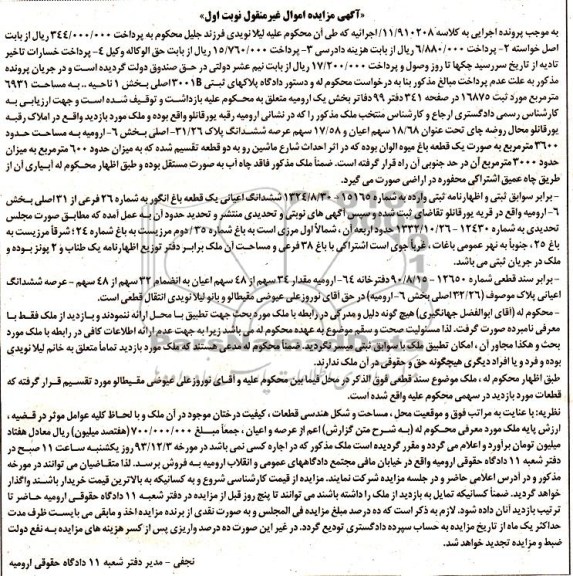 «آگهی مزایده اموال غیرمنقول نوبت اول»
به موجب پرونده اجرایی به کلاسه ۱۱/۹۱۰۲۰۸ اجرائیه که طی آن محکوم علیه لیلا نویدی فرزند جلیل محکوم به پرداخت ۳۴۴/۰۰۰/۰۰۰ ریال از بابت
اصل خواسته ۲- پرداخت ۶/۸۸۰/۰۰۰ ریال از بابت هزینه دادرسی ۳- پرداخت ۱۵/۷۶۰/۰۰۰ ریال از بابت حق الوکاله وکیل ۴- پرداخت خسارات تاخیر
تادیه از تاریخ سررسید چکها تا روز وصول و پرداخت ۱۷/۲۰۰/۰۰۰ ریال از بابت نیم عشر دولتی در حق صندوق دولت گردیده است و در جریان پرونده
مذکور به علت عدم پرداخت مبالغ مذکور بنا به درخواست محکوم له و دستور دادگاه پلاکهای ثبتی ۳۰۰۱B اصلی بخش ۱ ناحیه .. به مساحت ۶۹۳۱
مترمربع مورد ثبت ۱۶۸۷۵ در صفحه ۳۴۱ دفتر ۹۹ دفاتر بخش یک ارومیه متعلق به محکوم علیه بازداشت و توقیف شده است و جهت ارزیابی به
کارشناس رسمی دادگستری ارجاع و کارشناس منتخب ملک مذکور را که در نشانی ارومیه رقبه یورقانلو واقع بوده و ملک مورد بازدید واقع در املاک رقبه
یورقانلو محال روضه چای تحت عنوان ۱۸/۶۸ سهم اعیان و ۱۷/۵۸ سهم عرصه ششدانگ پلاک ۳۱/۲۶- اصلی بخش ۶- ارومیه به مساحت حدود
۳۶۰۰ مترمربع به صورت یک قطعه باغ میوه الوان بوده که در اثر احداث شارع ماشین رو به دو قطعه تقسیم شده که به میزان حدود ۶۰۰ مترمربع به میزان
حدود ۳۰۰۰ مترمربع آن در حد جنوبی آن راه قرار گرفته است. ضمناً ملک مذکور فاقد چاه آب به صورت مستقل بوده و طبق اظهار محکوم له آبیاری آن از
طریق چاه عمیق اشتراکی محفوره در اراضی صورت می گیرد.
- برابر سوابق ثبتی و اظهارنامه ثبتی وارده به شماره ۱۵۱۶۵- ۱۳۲۴/۸/۳۰ ششدانگ اعیانی یک قطعه باغ انگور به شماره ۲۶ فرعی از ۳۱ اصلی بخش
۶- ارومیه واقع در قریه یورقانلو تقاضای ثبت شده و سپس آگهی های نوبتی و تحدیدی منتشر و تحدید حدود آن به عمل آمده که مطابق صورت مجلس
تحدیدی به شماره ۱۲۴۳۰- ۱۳۳۲/۱۰/۲۶ حدود اربعه آن ، شمالاً اول مرزی است به باغ شماره ۳۵/ دوم مرزیست به باغ شماره ۲۴؛ شرقاً مرزیست به
باغ ۲۵، جنوباً به نهر عمومی باغات ، غرباً جوی است اشتراکی با باغ ۳۸ فرعی و مساحت آن ملک برابر دفتر توزیع اظهارنامه یک طناب و ۲ پونز بوده و
ملک در جریان ثبتی می باشد.
- برابر سند قطعی شماره ۱۲۶۵۰- ۹۰/۸/۱۵ دفترخانه ۶۴- ارومیه مقدار ۳۴ سهم از ۴۸ سهم اعیان به انضمام ۳۲ سهم از ۴۸ سهم - عرصه ششدانگ
اعیانی پلاک موصوف (۳۲/۲۶ اصلی بخش ۶-ارومیه) در حق آقای نوروزعلی عیوضی مقیطالو و بانو لیلا نویدی انتقال قطعی است.
- محکوم له (آقای ابوالفضل جهانگیری) هیچ گونه دلیل و مدرکی در رابطه با ملک مورد بحث جهت تطبیق با محل ارائه ننمودند و بازدید از ملک فقط با
معرفی نامبرده صورت گرفت. لذا مسئولیت صحت و سقم موضوع به عهده محکوم له می باشد زیرا به جهت عدم ارائه اطلاعات کافی در رابطه با ملک مورد
بحث و هکذا مجاور آن ، امکان تطبیق ملک با سوابق ثبتی میسر نگردید. ضمناً محکوم له مدعی هستند که ملک مورد بازدید تماماً متعلق به خانم لیلا نویدی
بوده و فرد و یا افراد دیگری هیچگونه حق و حقوقی در آن ملک ندارند.
طبق اظهار محکوم له ، ملک موضوع سند قطعی فوق الذکر در محل فیما بین محکوم علیه و آقای نوروزعلی عیوضی مقیطالو مورد تقسیم قرار گرفته که
قطعات مورد بازدید در سهمی محکوم علیه واقع شده است.
نظریه: با عنایت به مراتب فوق و موقعیت محل ، مساحت و شکل هندسی قطعات ، کیفیت درختان موجود در آن ملک و با لحاظ کلیه عوامل موثر در قضیه ،
ارزش پایه ملک مورد معرفی محکوم له (به شرح متن گزارش) اعم از عرصه و اعیان ، جمعاً مبلغ ۷۰۰/۰۰۰/۰۰۰ (هفتصد میلیون) ریال معادل هفتاد
میلیون تومان برآورد و اعلام می گردد و مقرر گردیده است ملک مذکور که در اجاره کسی نمی باشد در مورخه ۹۳/۱۲/۳ روز یکشنبه ساعت ۱۱ صبح در
دفتر شعبه ۱۱ دادگاه حقوقی ارومیه واقع در خیابان مافی مجتمع دادگاههای عمومی و انقلاب ارومیه به فروش برسد. لذا متقاضیان می توانند در مورخه
مذکور و در آدرس اعلامی حاضر و در جلسه مزایده شرکت نمایند. مزایده از قیمت کارشناسی شروع و به کسانیکه به بالاترین قیمت خریدار باشند واگذار
خواهد گردید. ضمناً کسانیکه تمایل به بازدید از ملک را داشته باشند می توانند تا پنج روز قبل از مزایده در دفتر شعبه ۱۱ دادگاه حقوقی ارومیه حاضر تا
ترتیب بازدید آنان داده شود. لازم به ذکر است که ده درصد مبلغ مزایده فی المجلس و به صورت نقدی از برنده مزایده اخذ و مابقی می بایست ظرف مدت
حداکثر یک ماه از تاریخ مزایده به حساب سپرده دادگستری تودیع گردد. در غیر این صورت ده درصد واریزی پس از کسر هزینه های مزایده به نفع دولت
ضبط و مزایده تجدید خواهد شد.
نجفی - مدیر دفتر شعبه ۱۱ دادگاه حقوقی ارومیه